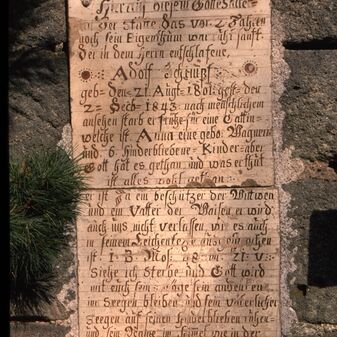 Hierauf diesem Gottesacker
an der Stätte das vor 2 Jahren
noch sein Eigenthum war ruht sanft
der in dem Herrn entschlafene
Adolf Schrupf
geb. den 21. Augt 1801. gest. den
2. Decb. 1843. nach menschlichem
ansehen starb er früh für eine Gattin
welche ist Anna eine gebo. Wagnerin
und 6. hinderbliebene Kinder aber
Gott hat es gethan und was er thut
ist alles wohl gethan
er ist Ja ein beschützer der Wittwen
und ein Vatter der Waisen er wird
auch uns nicht verlassen, wie es auch
in seinem Leichentext
ist 1. B. Mos. 48. 21. v.
Siehe ich sterbe und Gott wird
mit euch sein
im Seegen bleiben und sein väterlicher
Seegen auf seinen hinderbliebenen ruhen
und sein Name im Himel wie in der